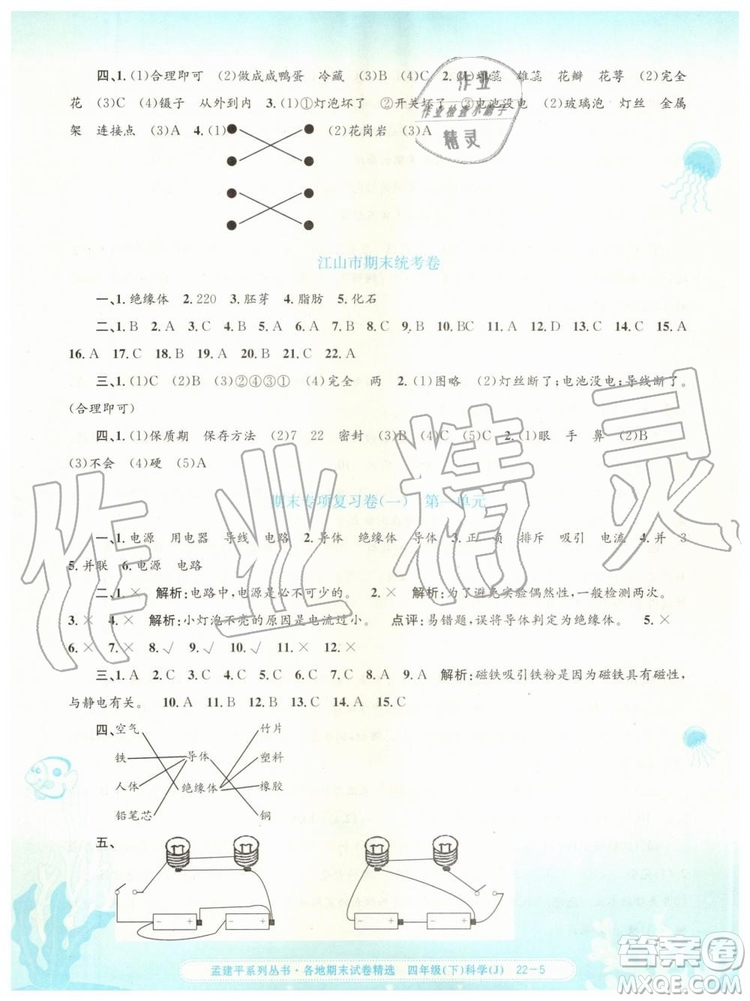 四、1. (1)合理即可 (2)做成咸鸭蛋 冷藏 (3)B (4)C 2. 雄蕊 花瓣 花萼 (2)完全
花 (3)C (4)镊子 从外到内 3. (1)①灯泡坏了 ②开关坏了 ③电池没电 (2)玻璃泡 灯丝 金属
架 连接点 (3)A 4. (1) (2)花岗岩
作业
作业检查小助手
精灵
江山市期末统考卷
一、1. 绝缘体 2. 220 3. 胚芽 4. 脂肪 5. 化石
二、1. B 2. A 3. C 4. B 5. A 6. C 7. B 8. C 9. C 10. B 11. BC 12. C 13. C 14. A 15. A
16. A 17. C 18. B 19. C 20. C 21. C 22. A
三、1. (1)C (2) (3)②④③① (4)完全 两 2. (1)图略 (2)灯丝断了;电池没电;导线断了。
(合理即可)
四、1. (1)保质期 保存方法 (2)7 22 密封 (3)B (4)C 2. (1)眼 手 鼻 (2)B
(3)不会 (4)硬 (5)A
期末专项复习卷(一) 第一单元
一、1. 电源 用电器 导线 电路 2. 导体 绝缘体 导体 3. 正 负 排斥 吸引 电流 4. 并 3
5. 并联 6. 电源 电路
二、1. × 解析:电路中,电源是必不可少的。 2. × 解析:为了避免实验偶然性,一般检测两次。
3. × 解析:小灯泡不亮的原因是电流过小。 点评:易错题,误将导体判定为绝缘体。 5. ×
6. × 7. × 8. √ 9. √ 10. √
三、1. A 2. C 3. B 4. C 5. B 6. B 7. C 8. C 9. A 解析:磁铁吸引铁粉是因为磁铁具有磁性,
与静电有关。 10. A 11. B 12. B 13. A 14. A 15. C
四、空气 竹片
铁 导体 塑料
人体 绝缘体 橡胶
铅笔芯 铜
五、
- + - +
- + - +
孟建平系列丛书·各地期末试卷精选 四年级(下)科学(J) 22-5
作业精灵
答案圈
MXQE.COM